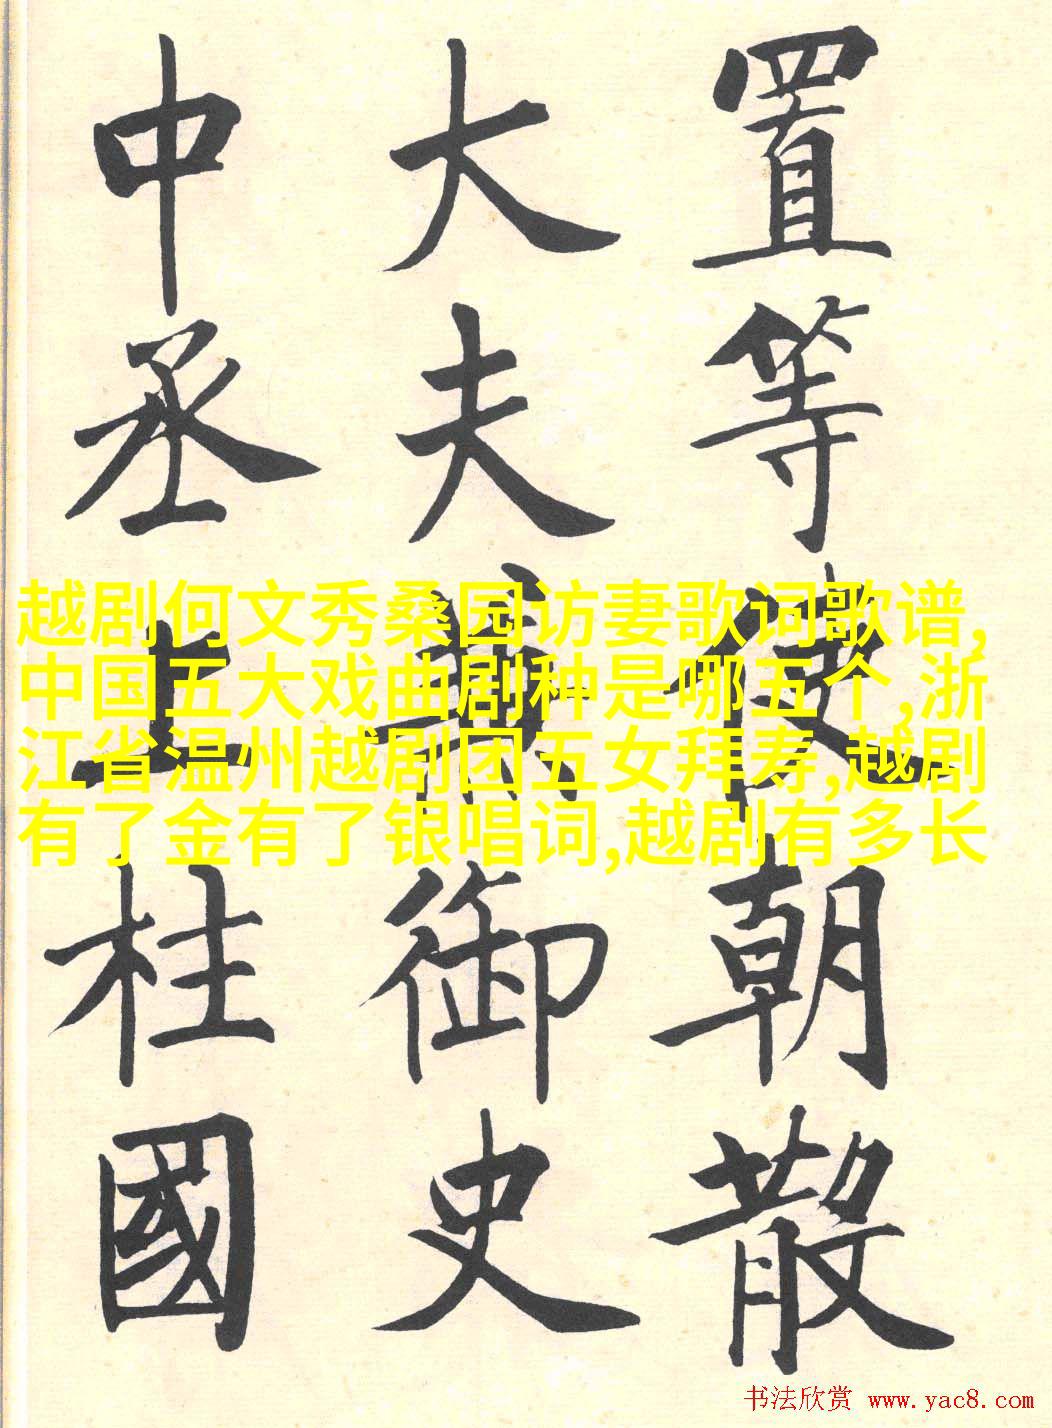 置等使朝散
大夫兼御史
中丞上柱國
越剧何文秀桑园访妻歌词歌谱,
中国五大戏曲剧种是哪五个,浙
江省温州越剧团五女拜寿,越剧
有了金有了银唱词,越剧有多长
书法欣赏 www.yac8.com